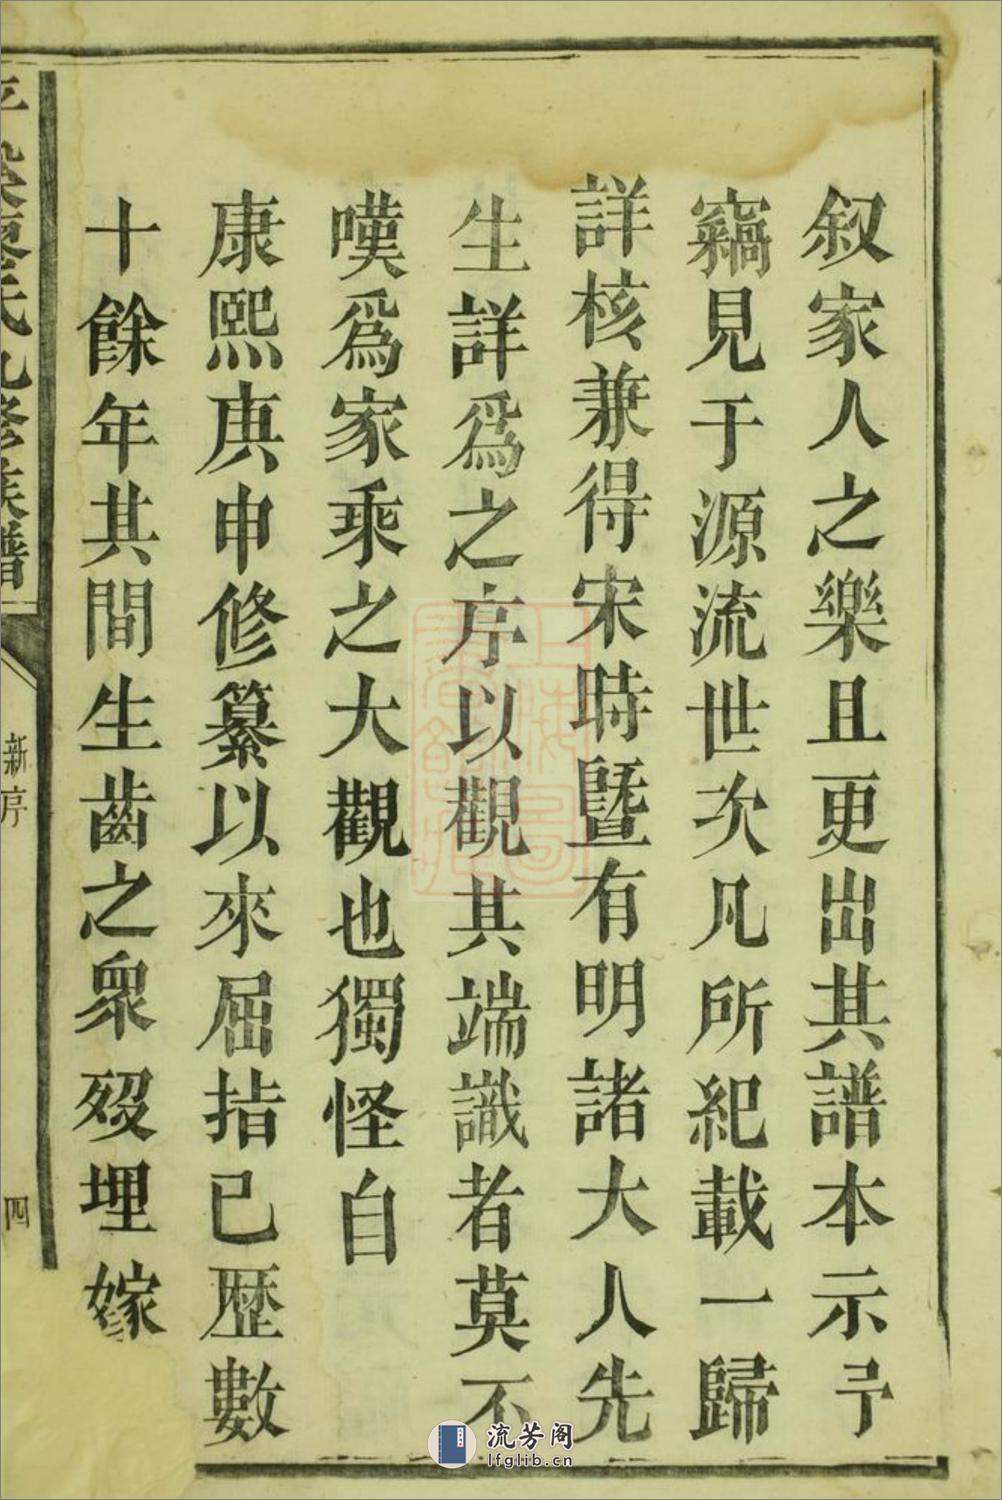 叙家人之樂且更出其譜本示予
竊見于源流世次凡所紀載一歸
詳核兼得宋時暨有明諸大人先
生詳爲之序以觀其端識者莫不
嘆爲家乘之大觀也獨怪自
康熙庚申修纂以來屈指已歷數
十餘年其間生齒之衆歿埋嫁
氏九修族譜
新序
四
流芳阁
lfglib.cn